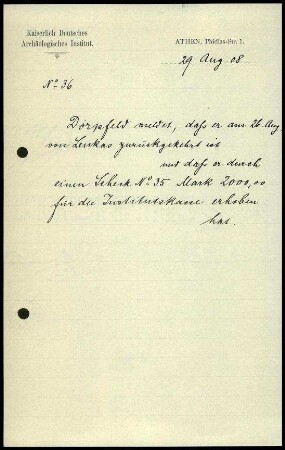 Kaiserlich Deutsches
Archäologisches Institut.
ATHEN, Phidias-Str. 1.
29 Aug. 08
No 36
Dörpfeld meldet, daſs er am 26. Aug
von Leukas zurückgekehrt ist
und daſs er durch
einen Scheck No 35 Mark 2000,00
für die Institutskasse erhoben
hat.